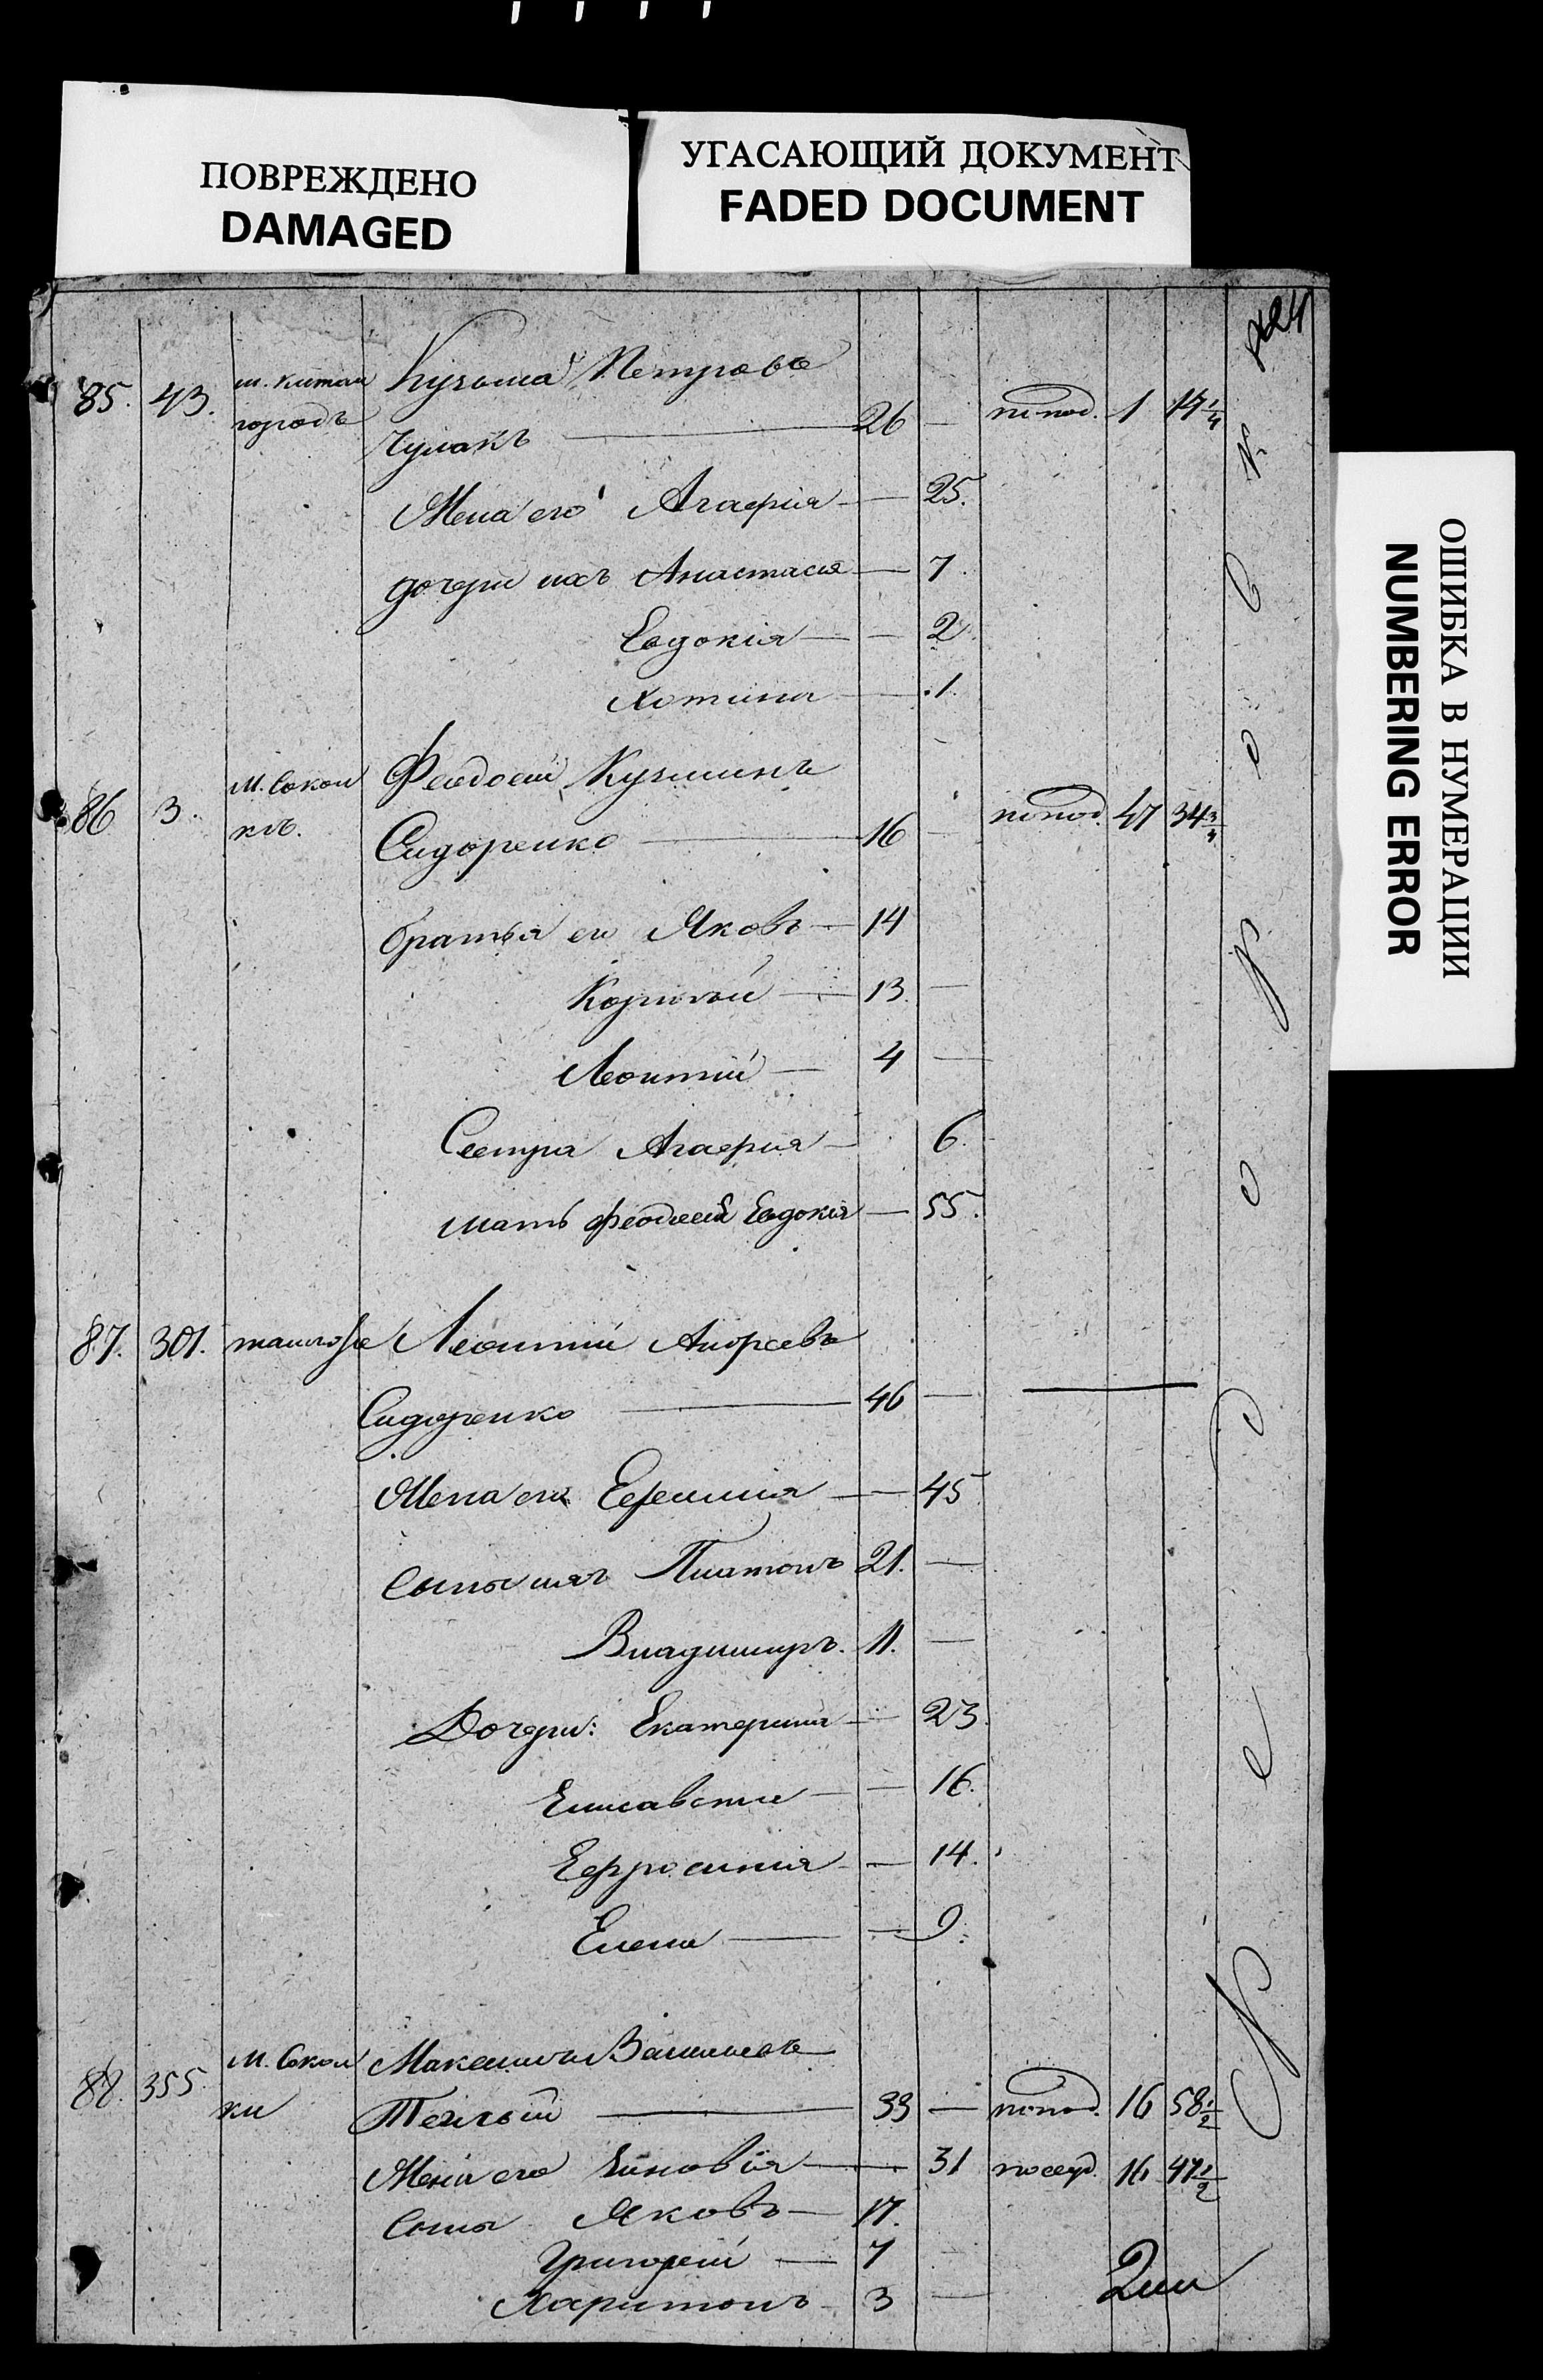 ПОВРЕЖДЕНО
DAMAGED
УГАСАЮЩИЙ ДОКУМЕНТ
FADED DOCUMENT
ОШИБКА В НУМЕРАЦИИ
NUMBERING ERROR
85. 43. м. Китай Кузьма Петровъ
городъ Чумакъ — 26 — попод. 1 14 1/4
Жена его Агафия — 25.
дочери ихъ Анастасія — 7.
Евдокія — — 2.
Хотина — 1.
86 3. М. Сокол Феодосий Кузминъ
Сидоренко — 16 — попод. 47 34 3/4
братья его Яковъ — 14
Корнилий — 13. —
Леонтий — 4 —
Сестра Агафия — 6.
мать Феодосия Евдокия — 55.
87. 301. Леонтий Андреевъ
Сидоренко — 46 —
Жена его — 45
Сыны ихъ Платонъ 21. —
Владимиръ. 11. —
Дочери: Екатерина — 23.
Елисавета — — 16.
Ефросиния — — 14.
Елена — — 9.
88. 355. М. Сокол Василиевъ
ки Теплый — 33 — попод. 16 58 1/2
Жена его Зиновія — 31 16 47 1/2
Сыны Яковъ — 17.
Григорий — 7
Харитонъ — 3 —